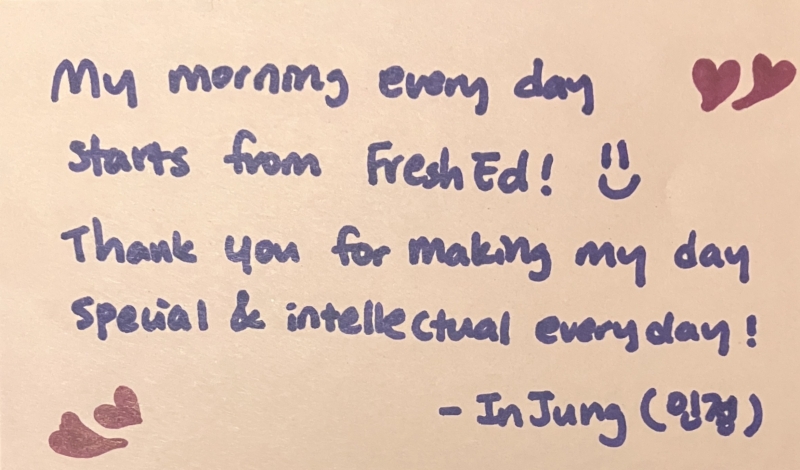 My morning every day
starts from FreshEd!
Thank you for making my day
special & intellectual everyday!
- InJung (인정)